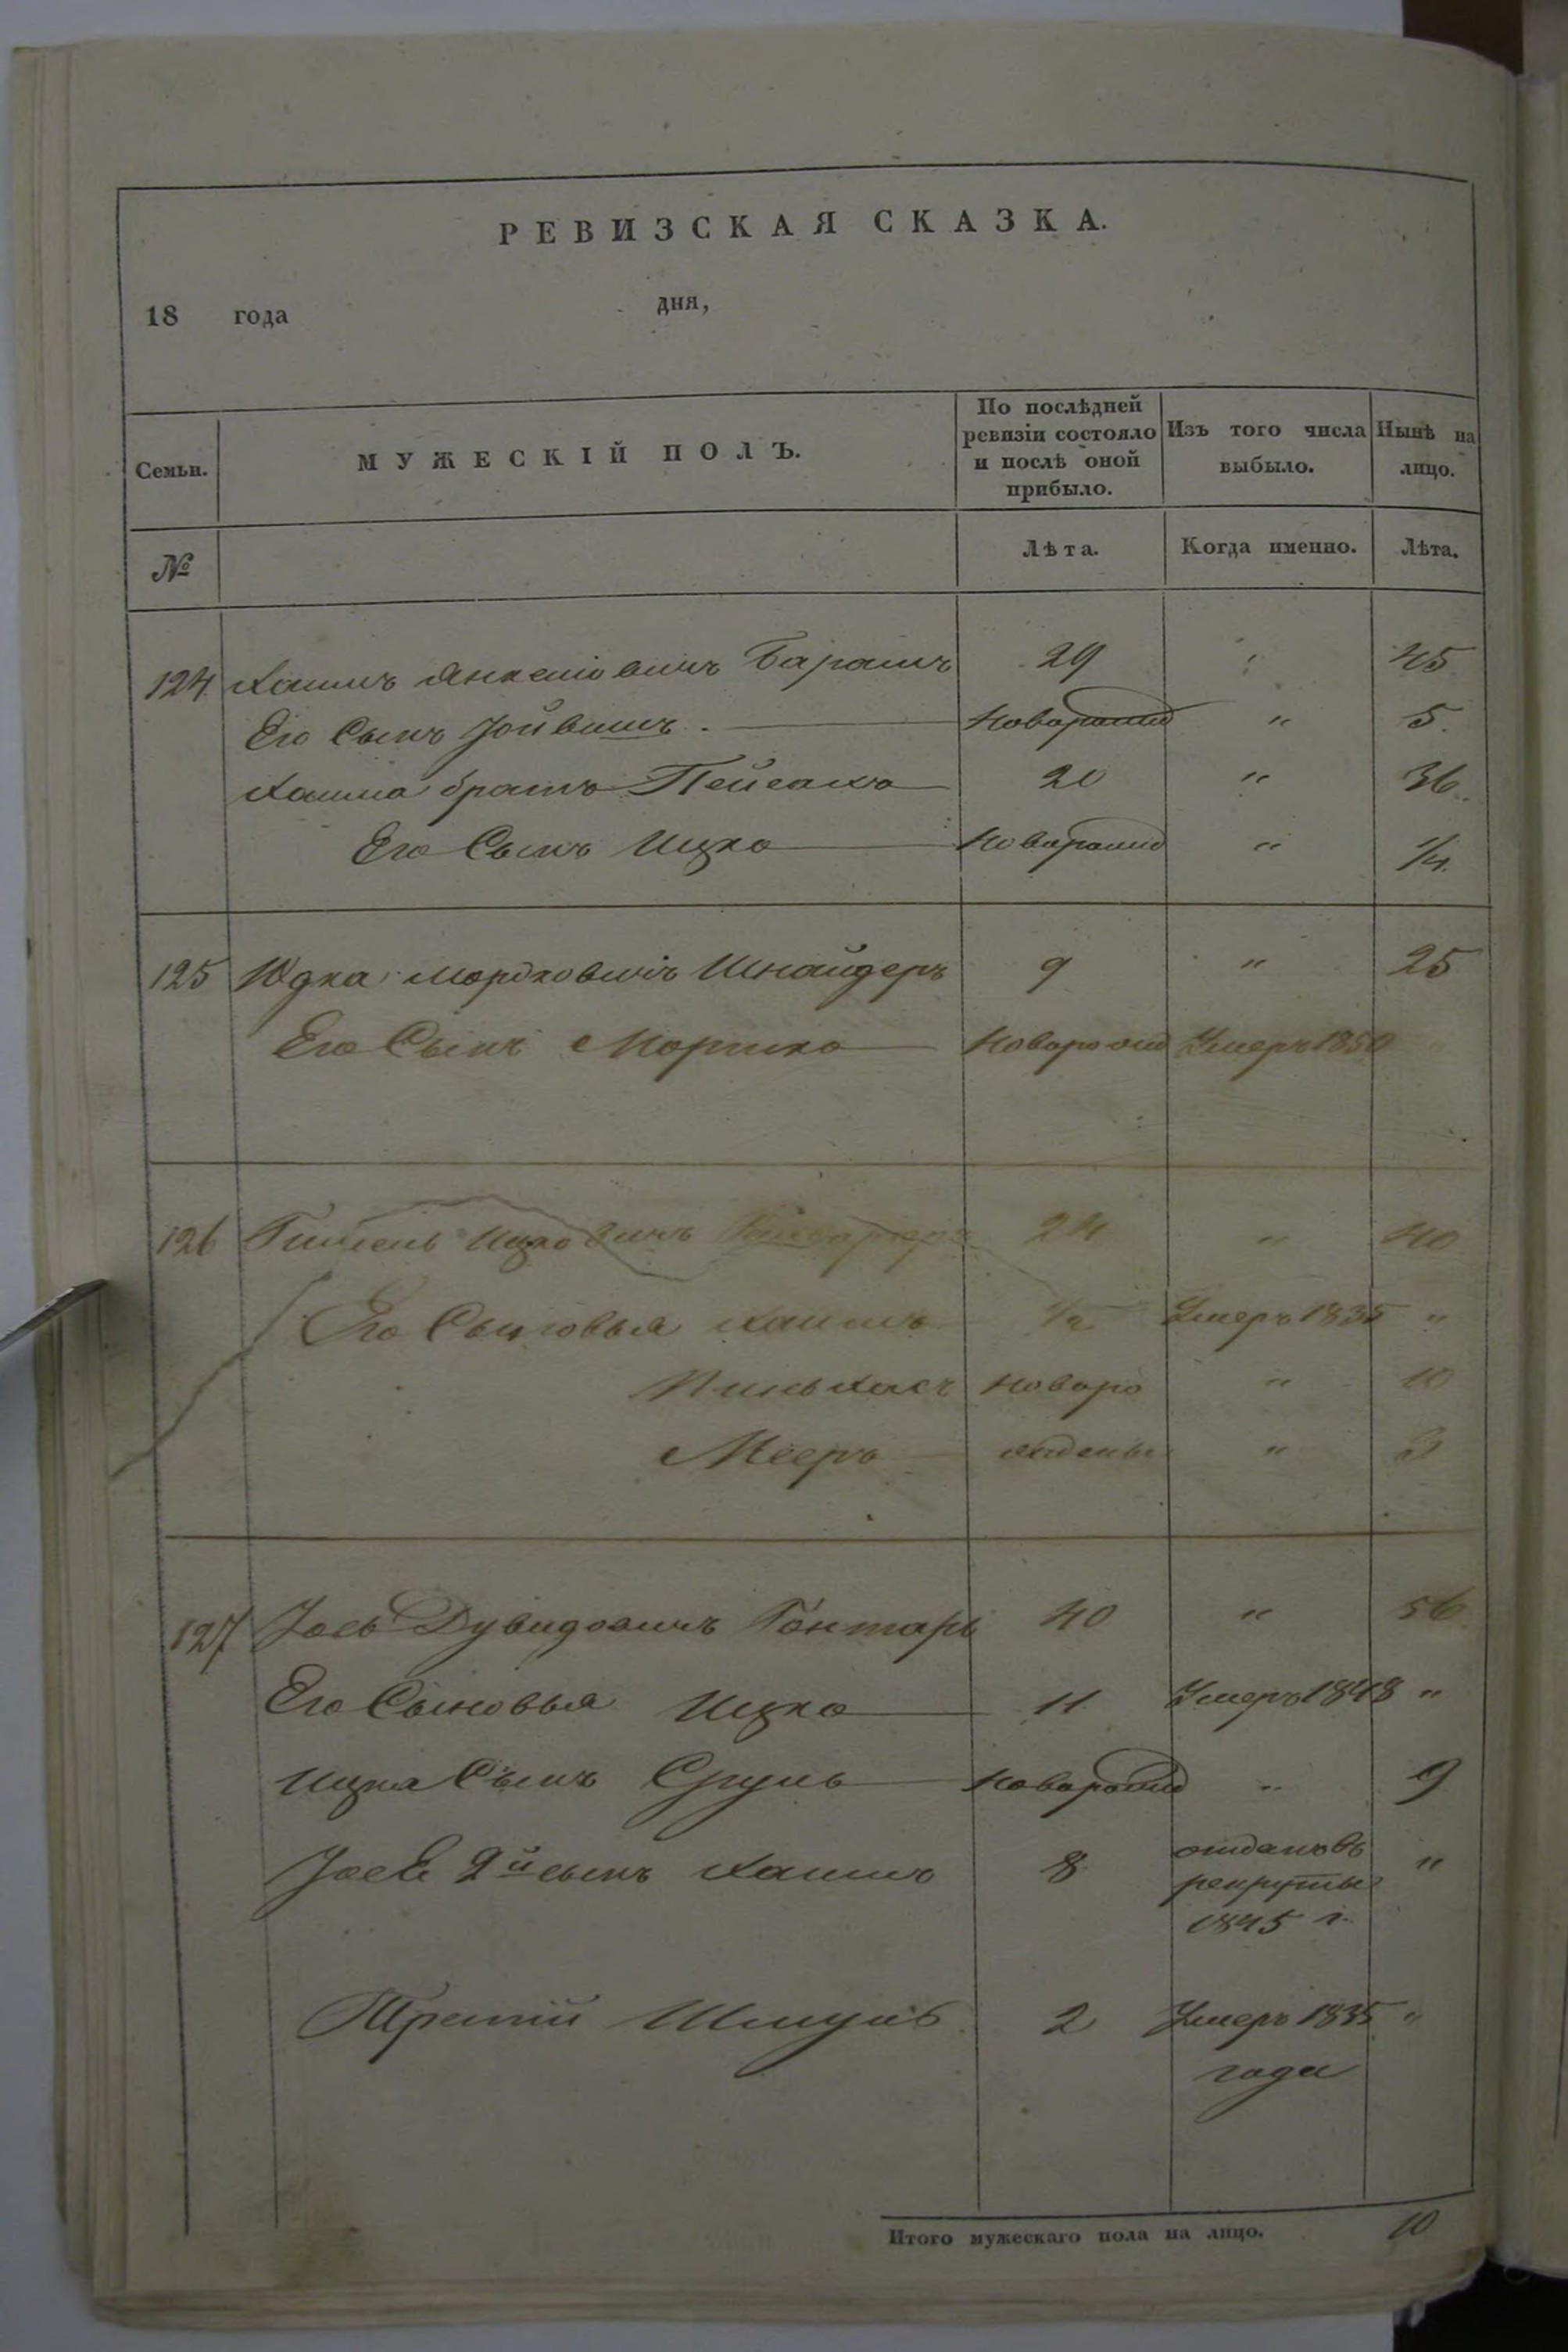 РЕВИЗСКАЯ СКАЗКА.
18 года дня,
Семьи. МУЖЕСКІЙ ПОЛЪ. По послѣдней ревизіи состояло и послѣ оной прибыло. Изъ того числа выбыло. Нынѣ на лицо.
№ Лѣта. Когда именно. Лѣта.
124 Хаимъ Янкеліовичъ Барашъ 29 " 45
Его Сынъ Іойвишъ новорожд " 5.
Хаима братъ Пейсахъ 20 " 36.
Его Сынъ Ицко новорожд " 1/4.
125 Юдка Мордковичъ Шнайдеръ 9 " 25
Его Сынъ Мортко новорожд Умеръ 1850
126 Гимпель Ицковичъ 24 " 40
Его Сыновья Хаимъ 1/2 Умеръ 1835 "
Пинхасъ новоро " 10
Мееръ жденые " 3
127 Іось Дувидовичъ Гонтарь 40 " 56
Его Сыновья Ицко 11 Умеръ 1848 "
Ицка Сынъ Сруль новорожд " 9
Іося 2й сынъ Хаимъ 8 отданъ въ рекруты 1845 г. "
Третій Шмуль 2 Умеръ 1835 года "
Итого мужескаго пола на лицо. 10